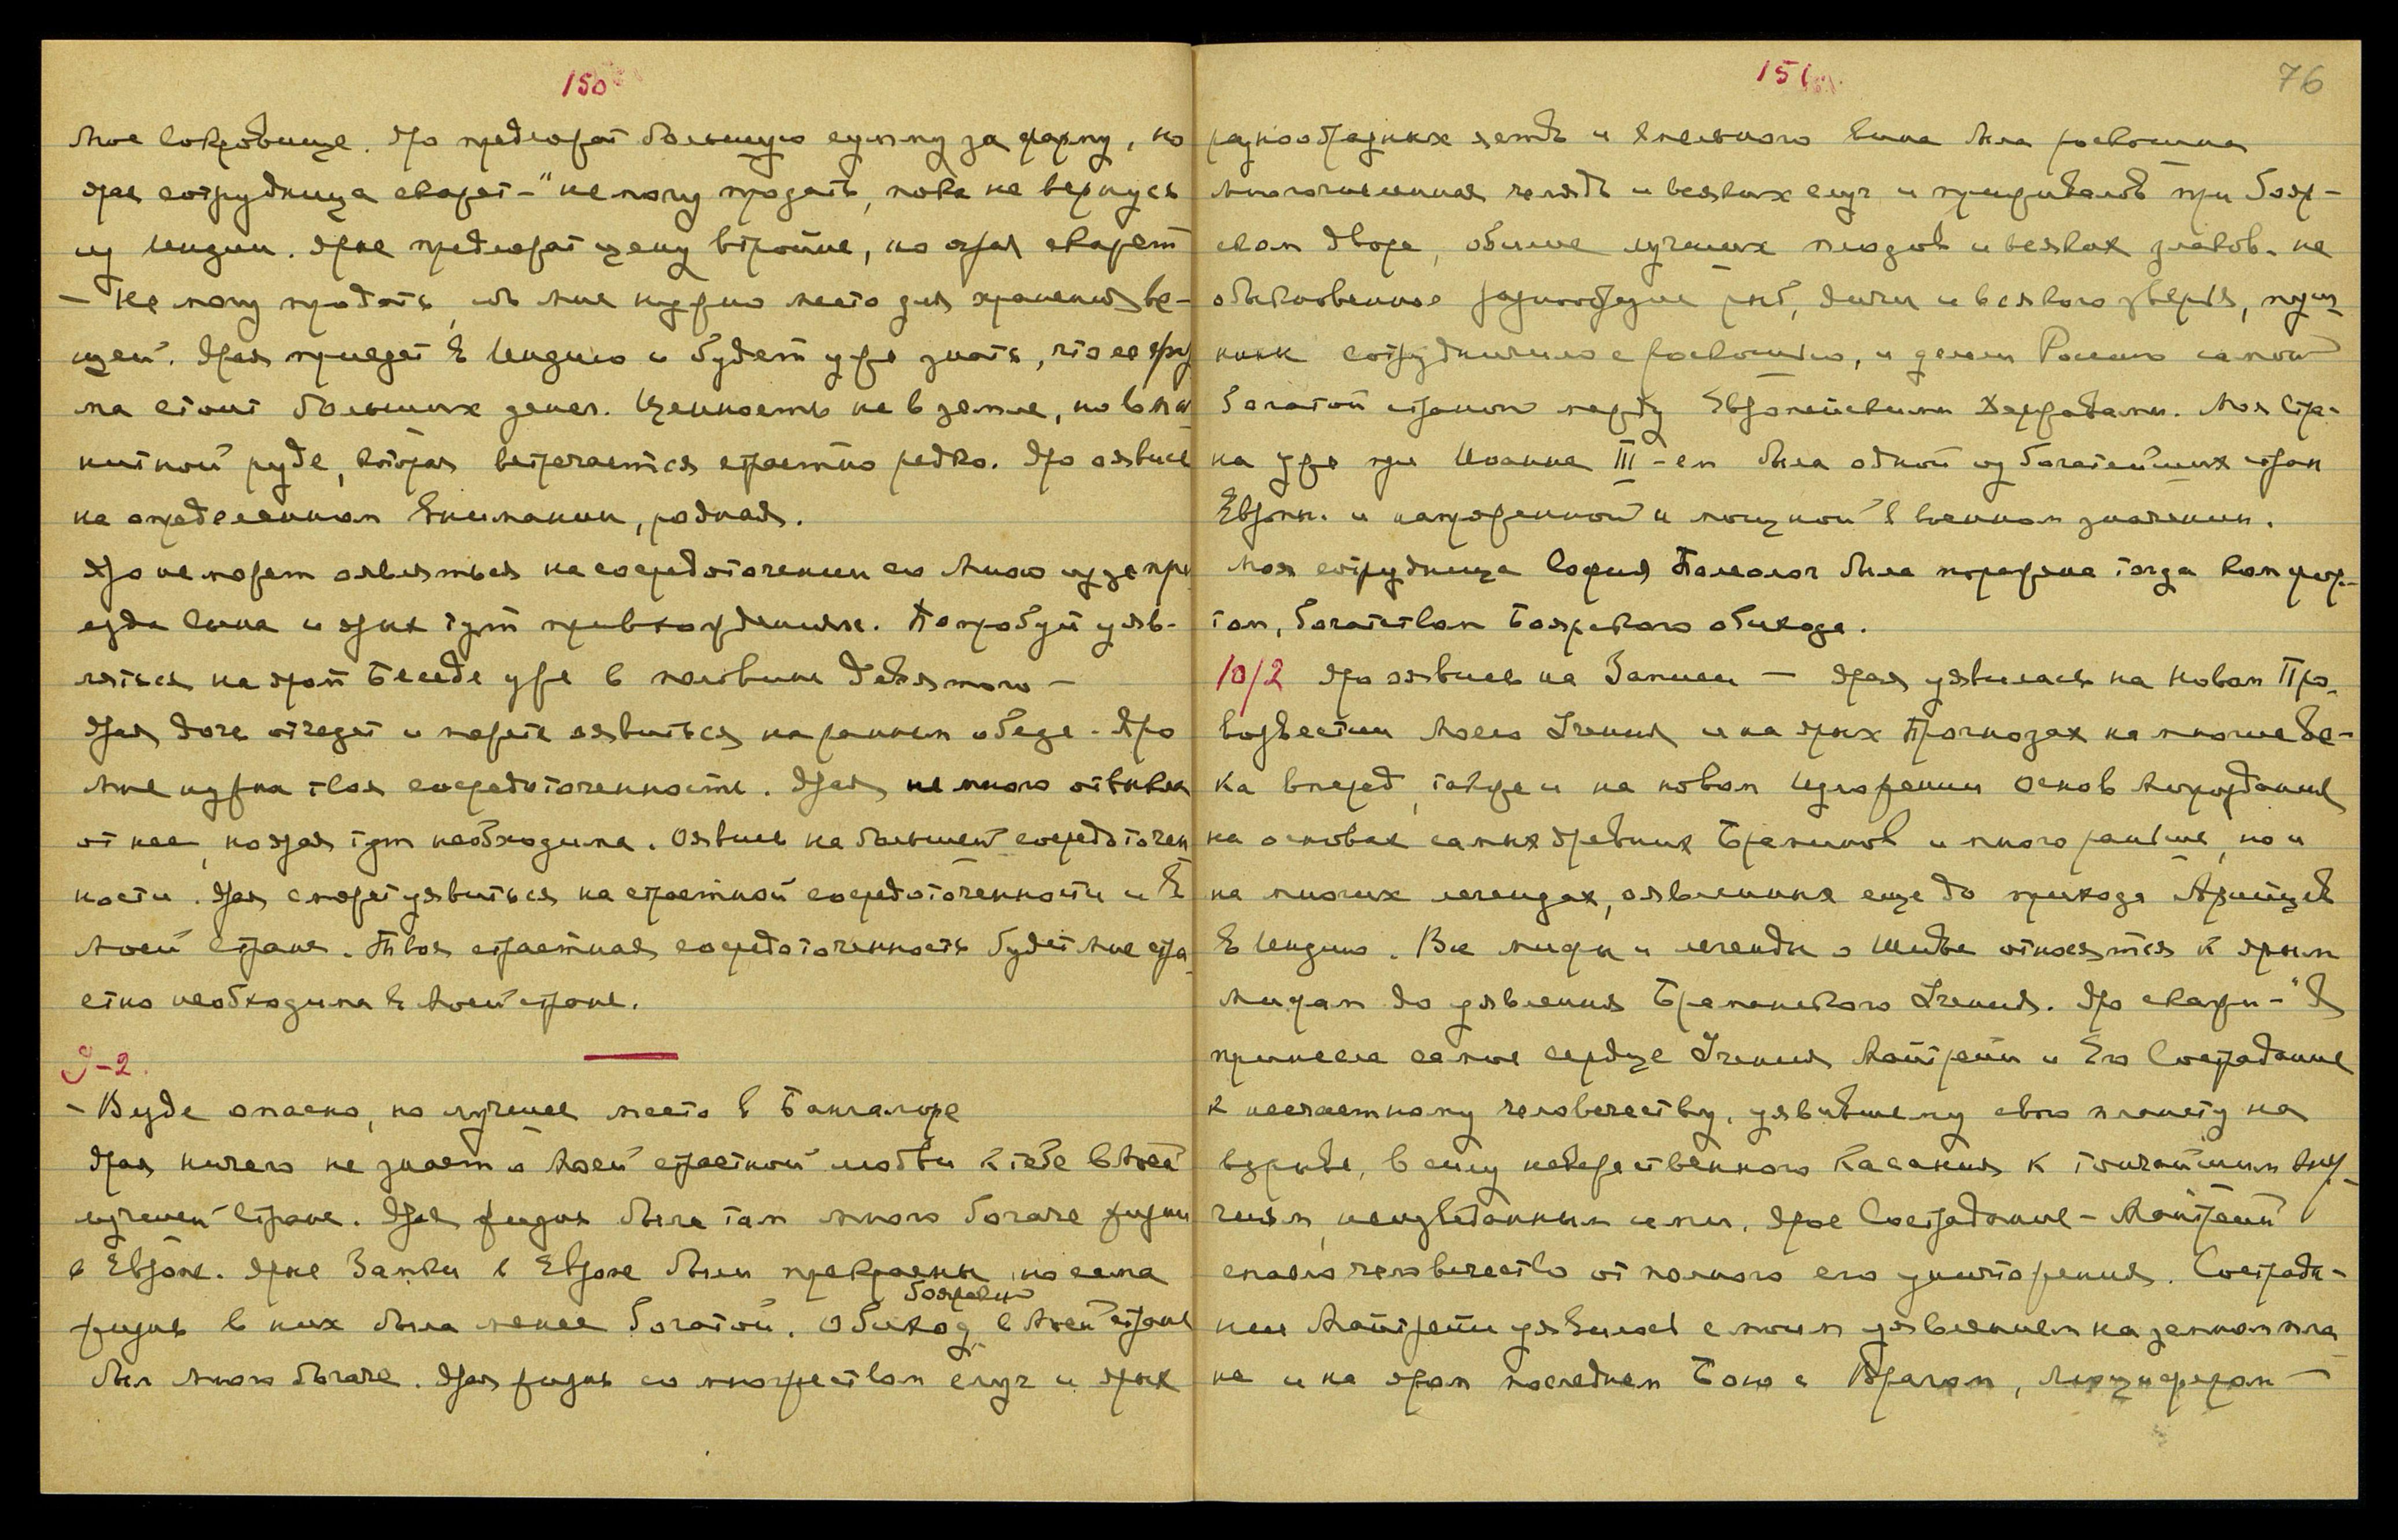 150
Мое Сокровище. Яро предложат большую сумму за ферму, но
ярая сотрудница скажет - "не могу продать, пока не вернусь
из Индии. Ярые предложат цену втройне, но ярая скажет
- Не могу продать, мне нужно место для хранения ве-
щей. Ярая приедет в Индию и будет уже знать, что ее фер
ма стоит больших денег. Ценность не в земле, но в
руде, которая встречается страстно редко. Яро оявись
на определенном внимании, родная.
Яро не может оявиться на сосредоточении со Мною из за при
езда Сына и ярых тут. Попробуй уяв-
ляться на ярой Беседе уже в половине девятого -
Ярая даче отчедет и может оявиться на раннем обеде. Яро
Мне нужна твоя сосредоточенность. Ярая немного отвыкла
от нее, но ярая тут необходима. Оявись на большей сосредоточен
ности. Ярая сможет уявиться на страстной сосредоточенности и в
Моей стране. Твоя страстная сосредоточенность будет Мне стра
стно необходима в Моей стране.
9-2.
- Всюде опасно, но лучшее место в Бангалоре
Ярая ничего не знает о Моей страстной любви к тебе в Моей
лучшей Стране. Ярая жизнь была там много богаче жизни
в Европе. Ярые Замки в Европе были прекрасны, но сама
боярский
жизнь в них была менее богатой. Обиход в Моей стране
был много богаче. Ярая жизнь со множеством слуг и ярых
151
76
разнообразных яств и хмельного вина была роскошна
Многочисленная челядь и всяких слуг и приживалов при бояр-
ском дворе, обилие лучших плодов и всяких злаков. не
обыкновенное разнообразие рыб, дичи и всякого зверья,
сотрудничало с роскошью, и делали Россию самой
богатой страной между Европейскими Державами. Моя Стра-
на уже при Иоанне III-ем была одной из богатейших стран
Европы. и напряженной и мощной в военном значении.
Моя сотрудница София Палеолог была поражена тогда комфор-
том, богатством Боярского обихода.
10/2 Яро оявись на Записи - Ярая уявилась на Новом Про-
возвестии Моего Учения и на ярых Прогнозах на многие ве-
ка вперед, также и на новом Изложении Основ Мироздания
на основах самых древних Браминов и много раньше, но и
на многих легендах, оявленных еще до прихода Арийцев
в Индию. Все мифы и легенды о Шиве относятся к ярым
мифам до уявления Браманского Учения. Яро скажи - "Я
принесла самое сердце Учения Майтрейи и Его Сострадание
к несчастному человечеству, уявившему свою планету на
взрыве, в силу невежественного касания к тончайшим энер-
гиям, неизведанным ими. Ярое Сострадание - Майтрейи
спасло человечество от полного его уничтожения. Сострада-
ние Майтрейи уявилось с моим уявлением на земном пла
не и на яром последнем Бою с Врагом, Люцифером -